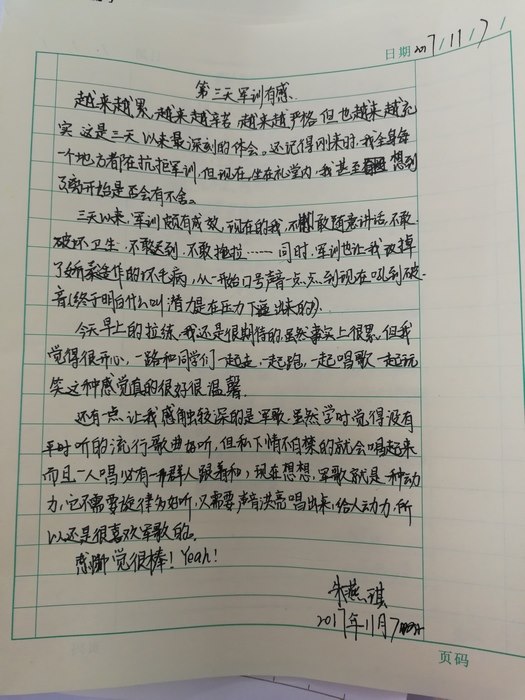 日期 2017/11/7
第三天军训有感
越来越累,越来越辛苦,越来越严格,但也越来越充
实,这是三天以来最深刻的体会。还记得刚来时,我全身每
一个地方都在抗拒军训,但现在,坐在礼堂内,我甚至想到
了离开始是否会有不舍。
三天以来,军训颇有成效,现在的我,不敢随意讲话,不敢
破坏卫生,不敢迟到,不敢拖拉……同时,军训也让我改掉
了娇柔造作的坏毛病,从一开始口号声音一点点到现在吼到破
音(终于明白什么叫潜力是在压力下逼出来的)。
今天早上的拉练,我还是很期待的,虽然事实上很累,但我
觉得很开心,一路和同学们一起走,一起跑,一起唱歌一起玩
笑这种感觉真的很好很温馨。
还有一点让我感触较深的是军歌,虽然学时觉得没有
平时听的流行歌曲好听,但私下情不自禁的就会唱起来
而且一人唱必有一群人跟着和,现在想想,军歌就是一种动
力,它不需要旋律多好听,只需要声音洪亮唱出来,给人动力,所
以还是很喜欢军歌的。
感觉很棒!Yeah!
朱燕琪
2017年11月7
页码